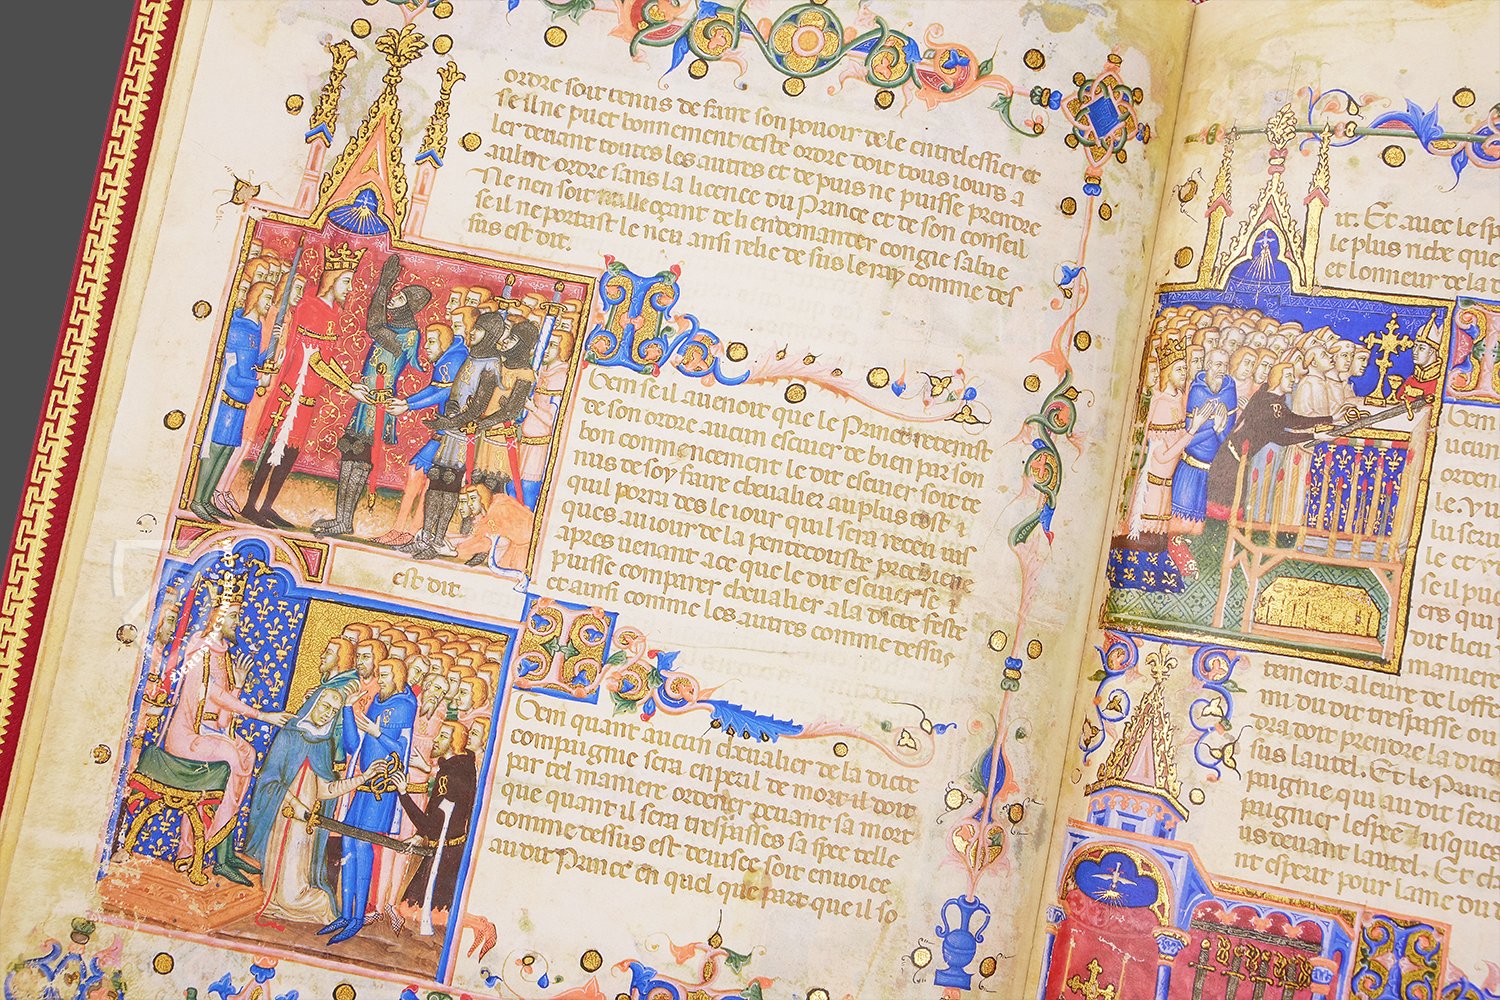 ordre soit tenus de faire son povoir de le entrelessier et
se il ne puet bonnement ceste ordre doit tous iours a
ler devant toutes les autres et de puis ne puisse prendre
aultre ordre sans la licence du Prince et de son conseil
Ne nen soit nulle ocant de li en demander congie salue
se il ne portast le neu ansi relie de sus le ray comme des
sus est dit.
Item se il avenoit que le Prince retenist
de son ordre aucun escuier de bien par son
bon commencement le dit escuier soit te
nus de soy faire chevalier au plus tost
quil porra des le iour quil sera receu
ques au iour de la pentecouste
apres venant a ce que le dit escuier se
puisse comparer chevalier a la dicte feste
et ainsi comme les autres comme dessus
est dit.
Item quant aucun chevalier de la dicte
compaignie sera en peril de mort il doit
par tel maniere ordener devant sa mort
que quant il sera trespasses sa spee telle
comme dessus est devisee soit envoiee
au dit Prince en quel que part que il so
it. Et avec le sp
le plus riche que
et lonneur de la
Item
aucun
ordene
le
lu
le et
se il puc
ers qui
dit lieu
maniere
tement alcune de loffe
mi du dit trespasse ou
dra doit prendre la dicte
sus lautel. Et le Prince
paignie qui au dit serui
pugnier lespee iusques
us devant lautel. Et ch
nt esperit pour lame du